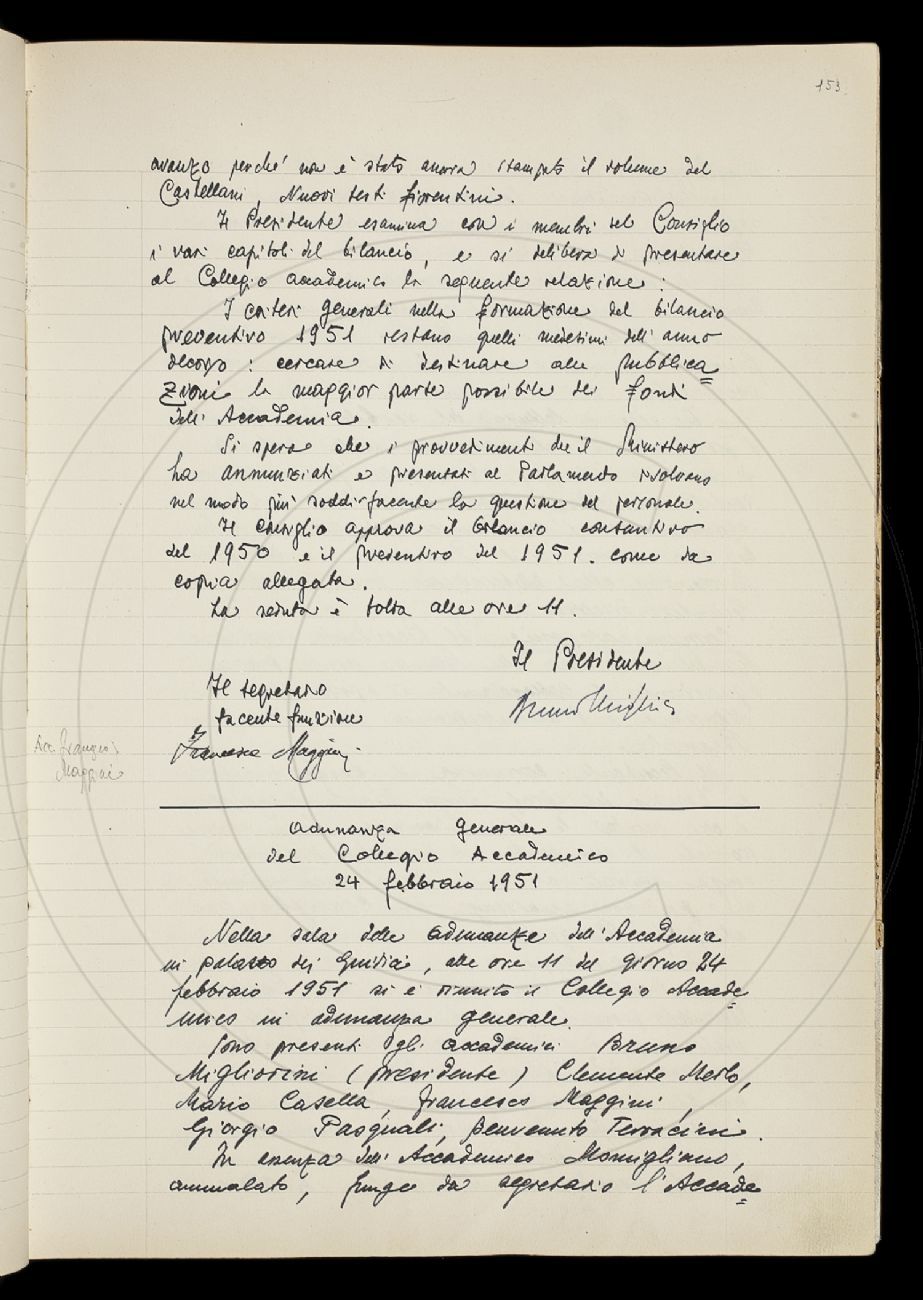 153.
avanzo perché non è stato ancora stampato il volume del
Castellani, Nuovi testi fiorentini.
Il Presidente esamina con i membri del Consiglio
i vari capitoli del bilancio, e si delibera di presentare
al Collegio accademico la seguente relazione:
I criteri generali nella formazione del bilancio
preventivo 1951 restano quelli medesimi dell'anno
decorso: cercare di destinare alle pubblica=
zioni la maggior parte possibile dei fondi
dell'Accademia.
Si spera che i provvedimenti che il Ministero
ha annunziati e presentati al Parlamento risolvano
nel modo più soddisfacente la questione del personale.
Il consiglio approva il bilancio consuntivo
del 1950 e il preventivo del 1951. come da
copia allegata.
La seduta è tolta alle ore 11.
Il Presidente
Bruno Migliorini
Il segretario
facente funzione
Francesco Maggini
Acc. Francesco
Maggini
Adunanza generale
del Collegio Accademico
24 febbraio 1951
Nella sala delle adunanze dell'Accademia
in palazzo dei Giudici, alle ore 11 del giorno 24
febbraio 1951 si è riunito il Collegio Accade=
mico in adunanza generale.
Sono presenti gli accademici Bruno
Migliorini (presidente) Clemente Merlo,
Mario Casella, Francesco Maggini,
Giorgio Pasquali, Benvenuto Terracini.
In assenza dell'Accademico Momigliano,
ammalato, funge da segretario l'Accade=